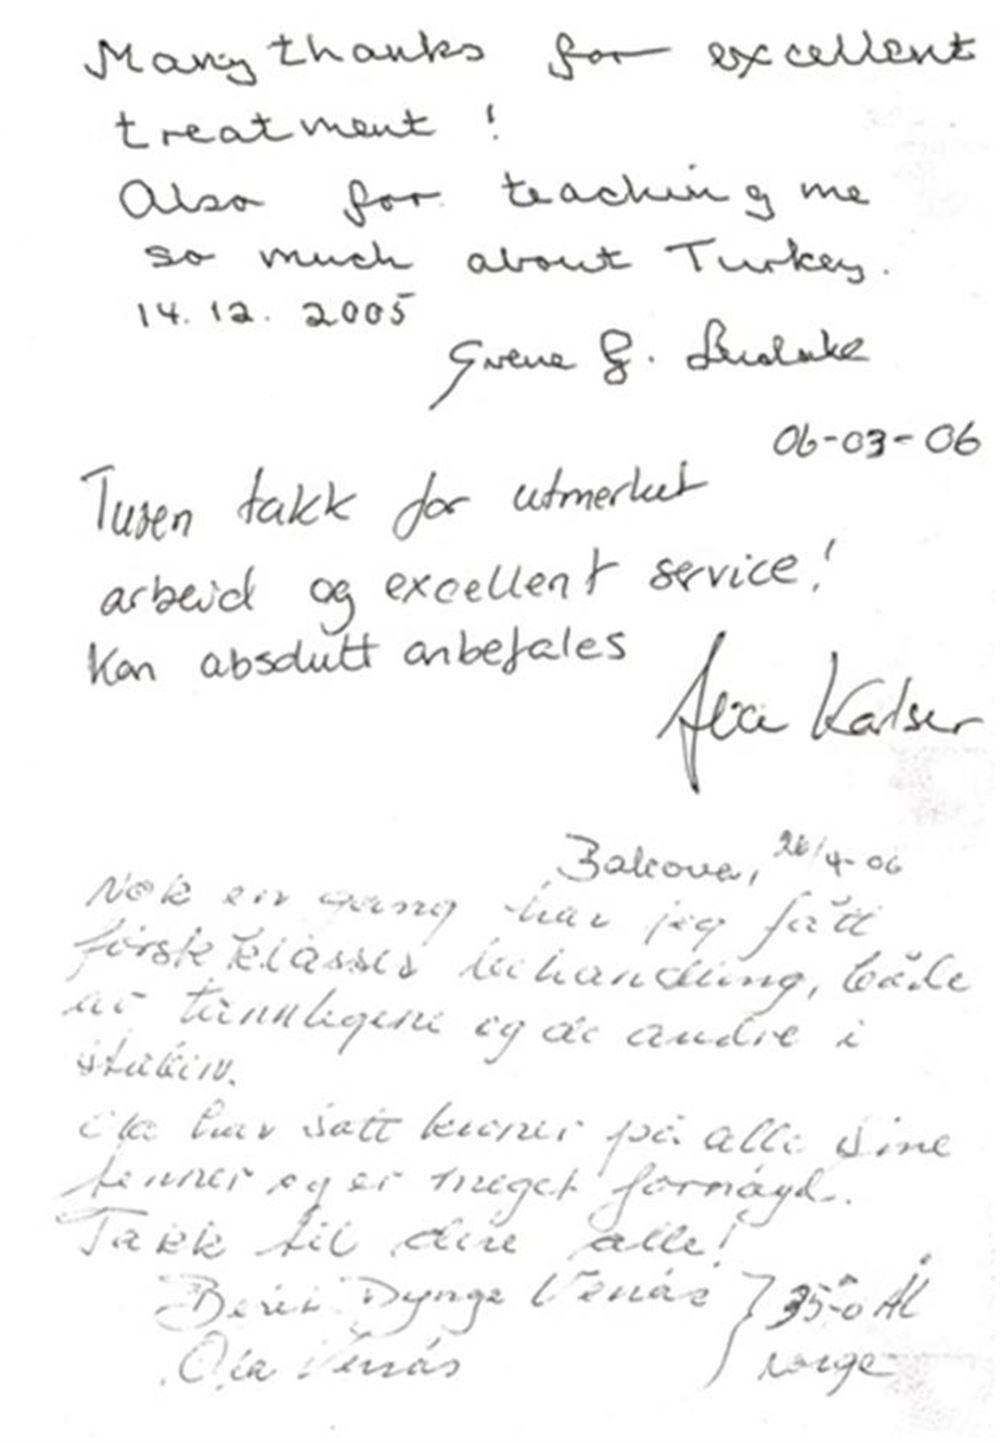 Many thanks for excellent
treatment!
Also for teaching me
so much about Turkey.
14.12.2005
G.
06-03-06
Tusen takk for utmerket
arbeid og excellent service!
Kan absolutt anbefales
Balcova, 26/4-06
Nok en gang har jeg fått
første klasses behandling, både
av tannlegene og de andre i
staben.
Ola har satt kroner på alle sine
tenner og er meget fornøyd.
Takk til dere alle!
Berit Dynge Venås } 35-0 Ål
Ola Venås norge